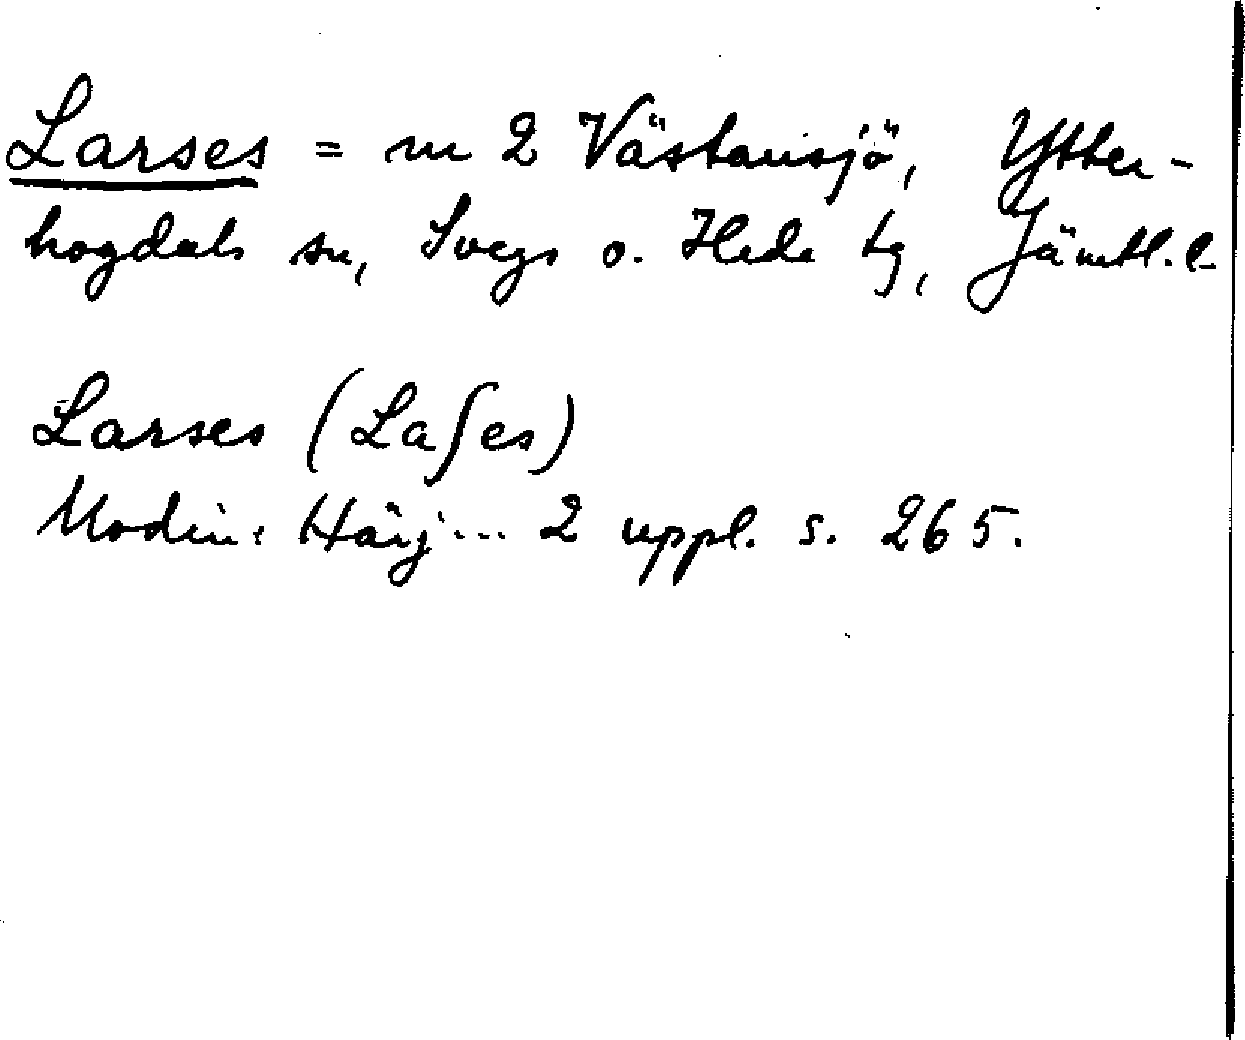 Larses = nr 2 Västansjö, Ytter-
hogdals sn, Svegs o. Hede tg, Jämtl. l.
Larses (Laʃes)
Modin: Härj... 2 uppl. s. 265.